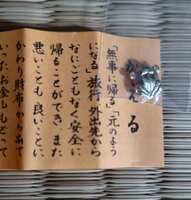 える
「無事に帰る」「元のよう
になる 旅行 外出先から
なにごともなく安全に
帰ることができ また
悪いことも 良いことに
かわり財布から
お金もどって